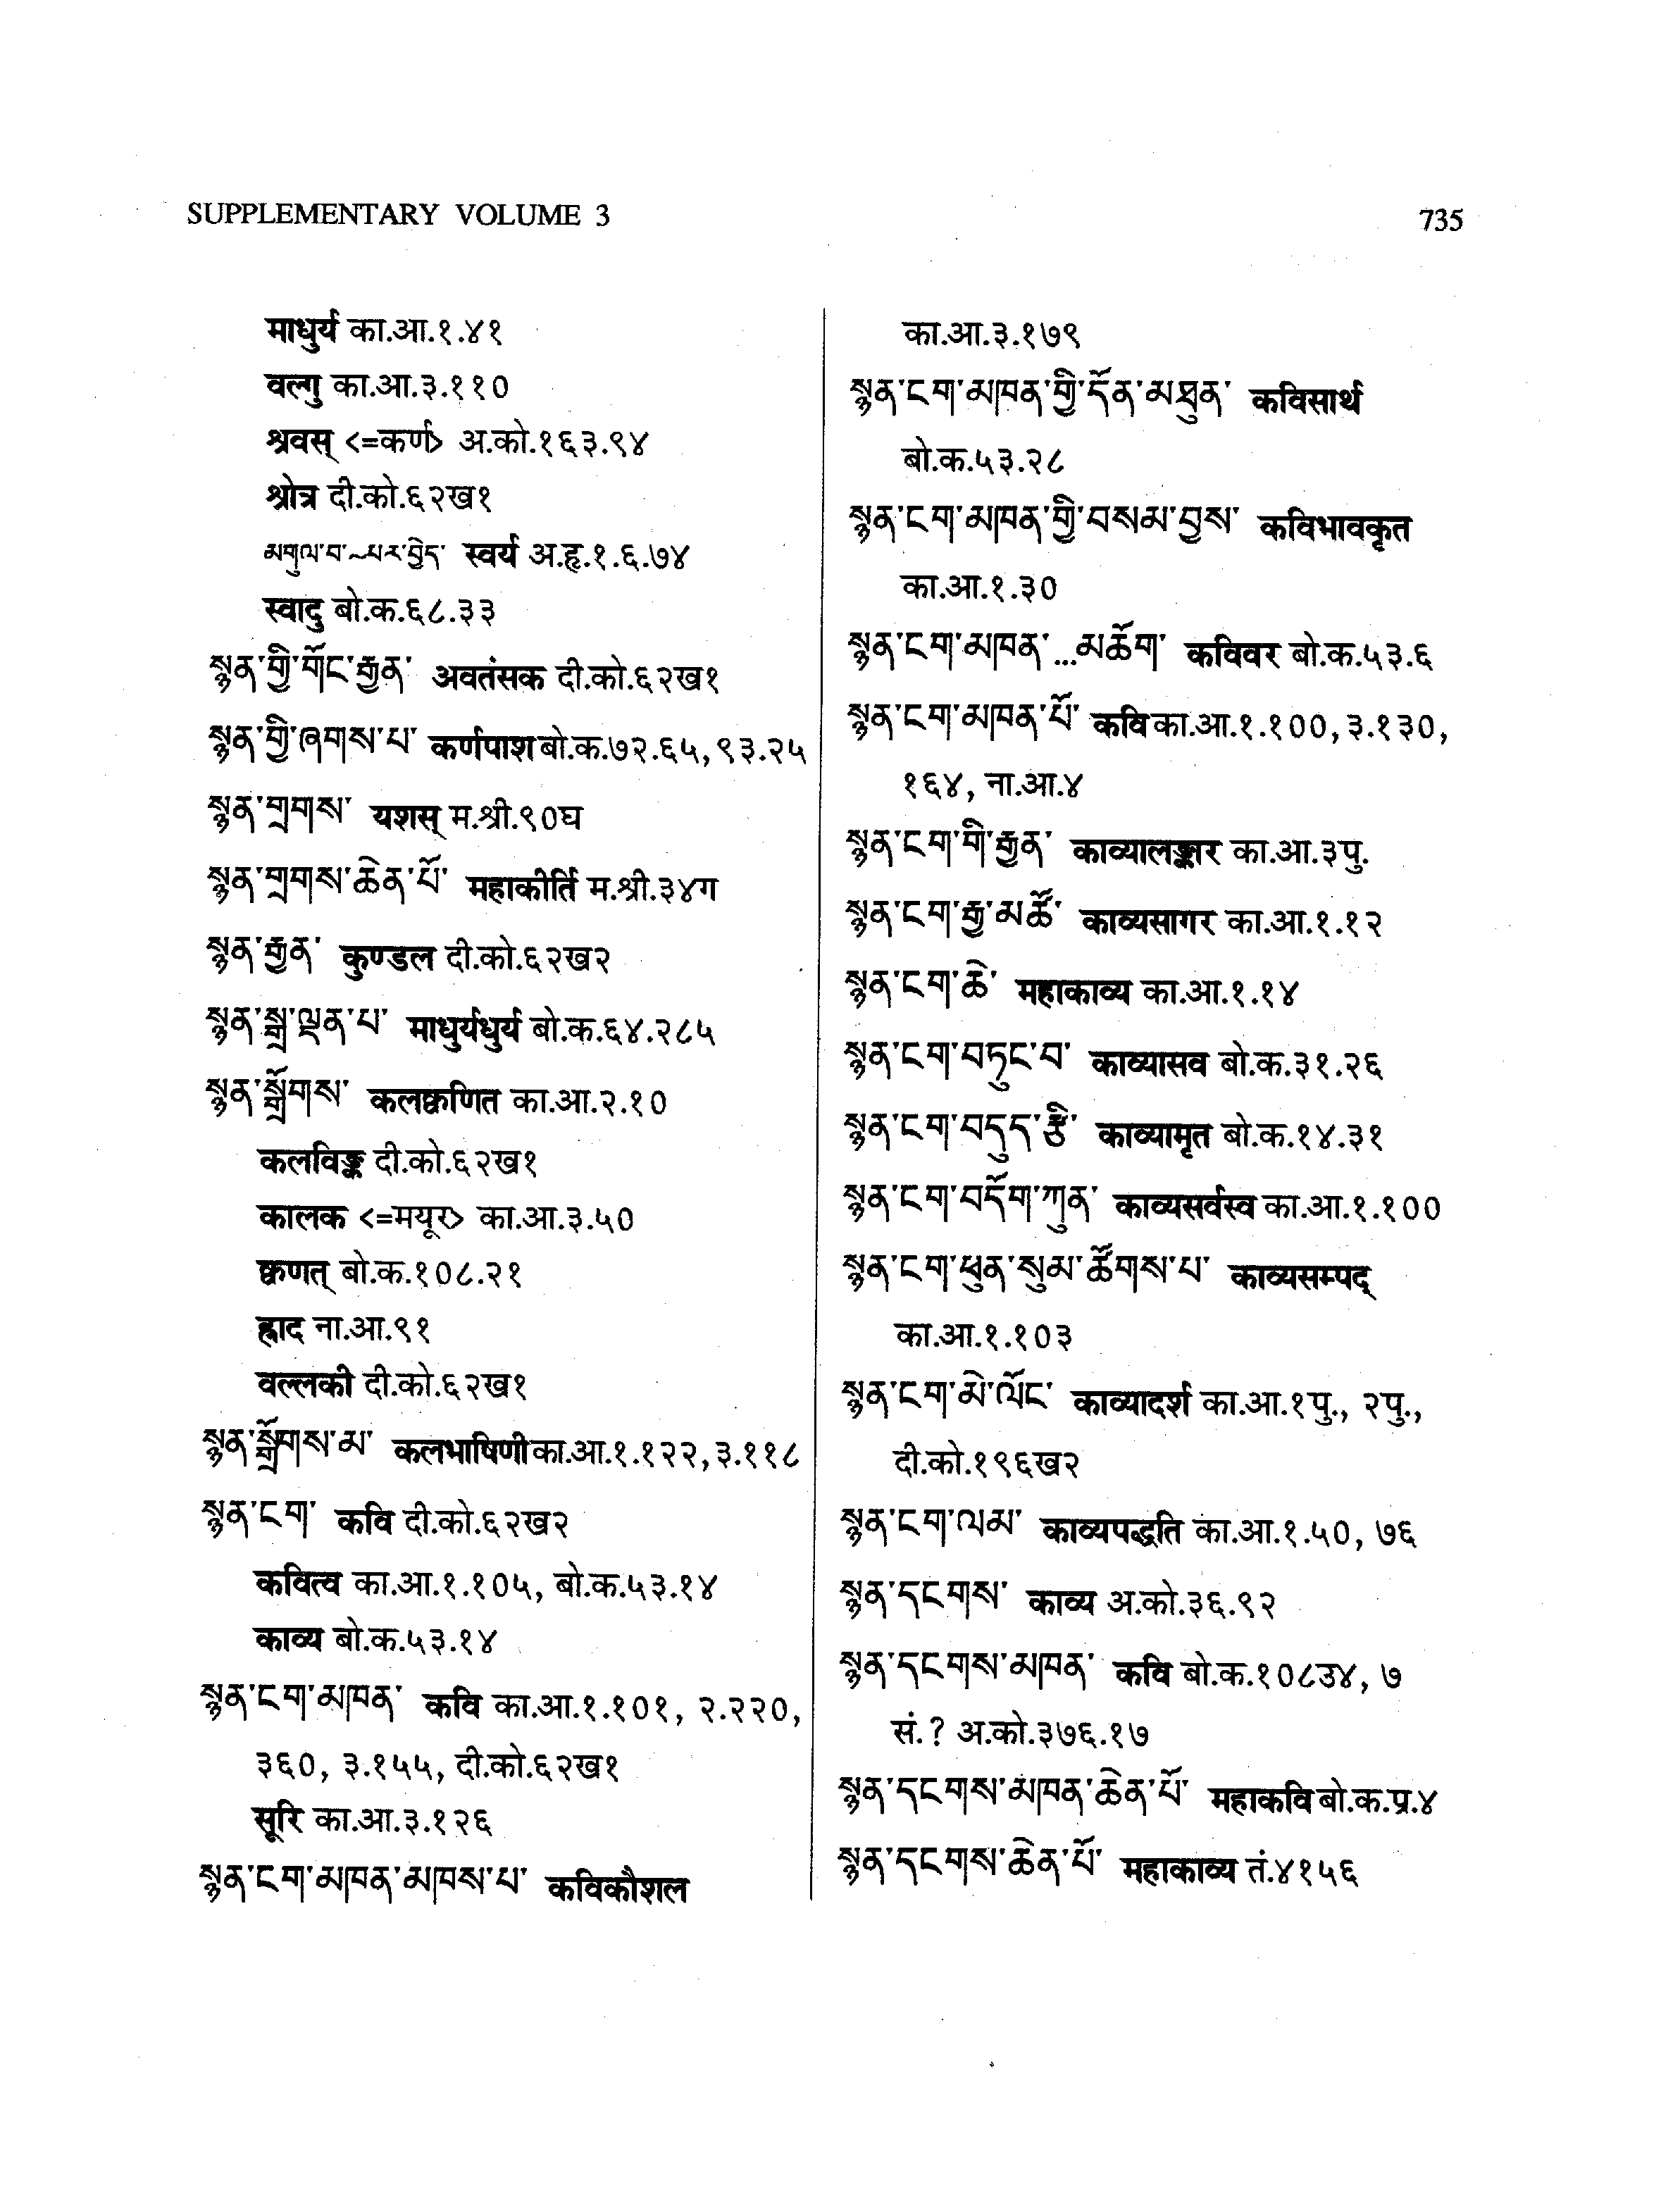 SUPPLEMENTARY VOLUME 3
735
माधुर्य का.आ.१.४१
वल्गु का.आ.३.११०
श्रवस् <=कर्ण> अ.को.१६३.९४
श्रोत्र दी.को.६२ख१
མགུལ་བ་~པར་བྱེད་ स्वर्य अ.हृ.१.६.७४
स्वादु बो.क.६८.३३
སྙན་གྱི་གོང་རྒྱན་ अवतंसक दी.को.६२ख१
སྙན་གྱི་ཞགས་པ་ कर्णपाश बो.क.७२.६५, ९३.२५
སྙན་གྲགས་ यशस् म.श्री.९०घ
སྙན་གྲགས་ཆེན་པོ་ महाकीर्ति म.श्री.३४ग
སྙན་རྒྱན་ कुण्डल दी.को.६२ख२
སྙན་སྒྲ་ལྡན་པ་ माधुर्यधुर्य बो.क.६४.२८५
སྙན་སྒྲོགས་ कलक्वणित का.आ.२.१०
कलविङ्क दी.को.६२ख१
कालक <=मयूर> का.आ.३.५०
क्वणत् बो.क.१०८.२१
ह्लाद ना.आ.९१
वल्लकी दी.को.६२ख१
སྙན་སྒྲོགས་མ་ कलभाषिणी का.आ.१.१२२, ३.११८
སྙན་ངག་ कवि दी.को.६२ख२
कवित्व का.आ.१.१०५, बो.क.५३.१४
काव्य बो.क.५३.१४
སྙན་ངག་མཁན་ कवि का.आ.१.१०१, २.२२०,
३६०, ३.१५५, दी.को.६२ख१
सूरि का.आ.३.१२६
སྙན་ངག་མཁན་མཁས་པ་ कविकौशल
का.आ.३.१७९
སྙན་ངག་མཁན་གྱི་དོན་མཐུན་ कविसार्थ
बो.क.५३.२८
སྙན་ངག་མཁན་གྱི་བསམ་བྱས་ कविभावकृत
का.आ.१.३०
སྙན་ངག་མཁན་...མཆོག་ कविवर बो.क.५३.६
སྙན་ངག་མཁན་པོ་ कवि का.आ.१.१००, ३.१३०,
१६४, ना.आ.४
སྙན་ངག་གི་རྒྱན་ काव्यालङ्कार का.आ.३पु.
སྙན་ངག་རྒྱ་མཚོ་ काव्यसागर का.आ.१.१२
སྙན་ངག་ཆེ་ महाकाव्य का.आ.१.१४
སྙན་ངག་བཏུང་བ་ काव्यासव बो.क.३१.२६
སྙན་ངག་བདུད་རྩི་ काव्यामृत बो.क.१४.३१
སྙན་ངག་བདོག་ཀུན་ काव्यसर्वस्व का.आ.१.१००
སྙན་ངག་ཕུན་སུམ་ཚོགས་པ་ काव्यसम्पद्
का.आ.१.१०३
སྙན་ངག་མེ་ལོང་ काव्यादर्श का.आ.१पु., २पु.,
दी.को.१९६ख२
སྙན་ངག་ལམ་ काव्यपद्धति का.आ.१.५०, ७६
སྙན་དངགས་ काव्य अ.को.३६.९२
སྙན་དངགས་མཁན་ कवि बो.क.१०८३४, ७
सं.? अ.को.३७६.१७
སྙན་དངགས་མཁན་ཆེན་པོ་ महाकवि बो.क.प्र.४
སྙན་དངགས་ཆེན་པོ་ महाकाव्य तं.४१५६